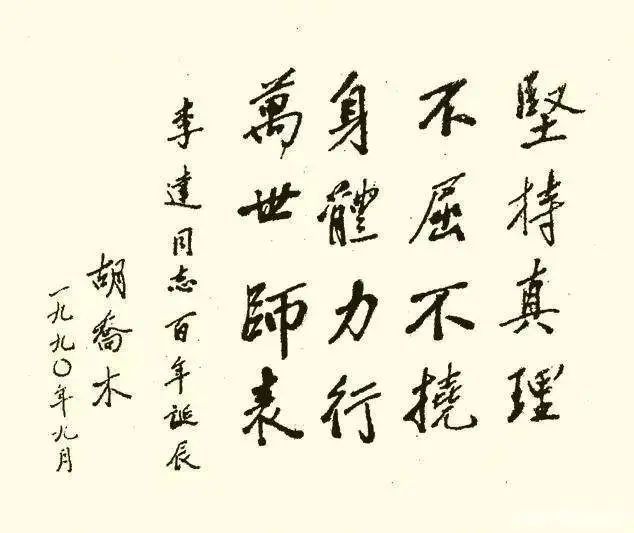 堅持真理
不屈不撓
身體力行
萬世師表
李達同志百年誕辰
胡喬木
一九九〇年九月